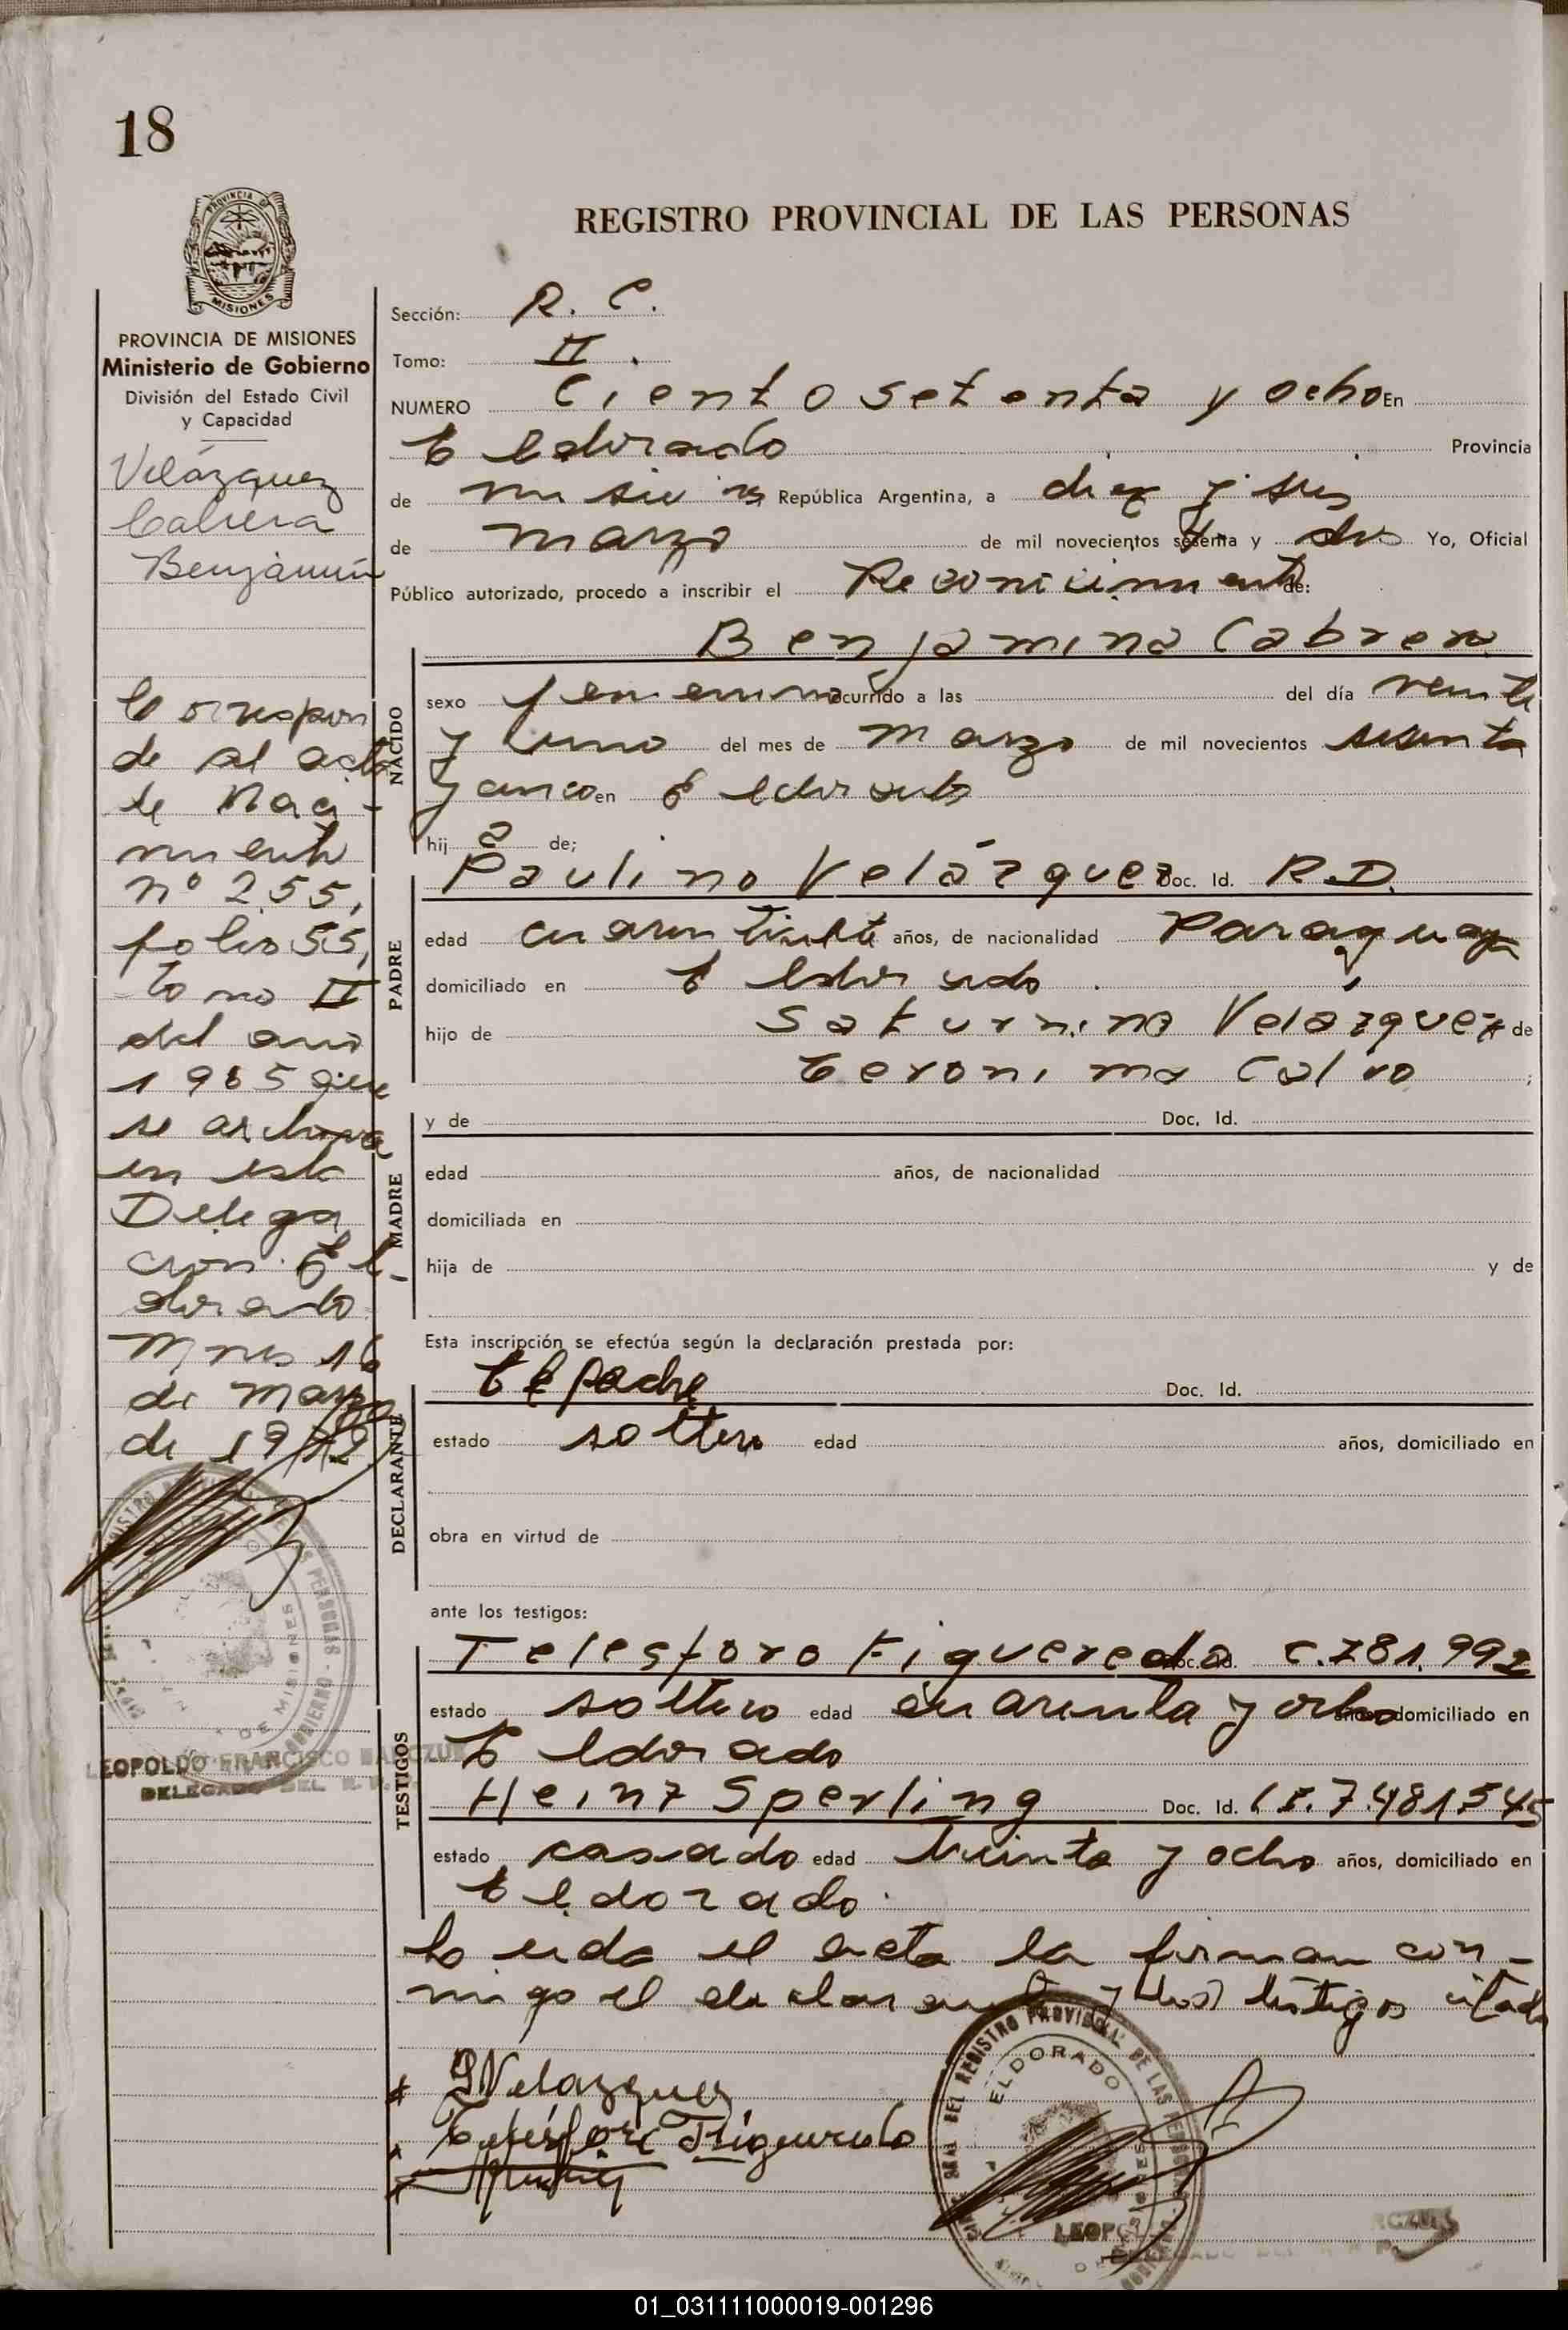 18
PROVINCIA DE
MISIONES
PROVINCIA DE MISIONES
Ministerio de Gobierno
División del Estado Civil
y Capacidad
Velázquez
Cabrera
Benjamin
Correspon
de al acta
de Naci-
miento
nº 255,
folio 55,
tomo II
del año
1965 que
se archiva
en esta
Delega
cion. El
dorado
Mnes 16
de Marzo
de 1972
LEOPOLDO FRANCISCO
DELEGADO DEL R. P.
REGISTRO PROVINCIAL DE LAS PERSONAS
Sección: R. C.
Tomo: II.
NUMERO Ciento setenta y ocho En
Eldorado Provincia
de misiones República Argentina, a diez y seis
de marzo de mil novecientos sesenta y dos Yo, Oficial
Público autorizado, procedo a inscribir el Reconocimiento de:
NACIDO
Benjamina Cabrera
sexo femenino ocurrido a las del día veinte
y uno del mes de marzo de mil novecientos sesenta
y cinco en Eldorado
hij a de;
PADRE
Paulino Velázquez Doc. Id. R.D.
edad años, de nacionalidad Paraguaya
domiciliado en Eldorado.
hijo de Saturnino Velázquez y de
Geronima Calvo ;
MADRE
y de Doc. Id.
edad años, de nacionalidad
domiciliada en
hija de y de
Esta inscripción se efectúa según la declaración prestada por:
DECLARANTE
El padre Doc. Id.
estado soltero edad años, domiciliado en
obra en virtud de
ante los testigos:
TESTIGOS
Telesforo Figueredo Doc. Id. C.781.992
estado soltero edad cuarenta y ocho años, domiciliado en
Eldorado
Heinz Sperling Doc. Id. 7.481.545
estado casado edad treinta y ocho años, domiciliado en
Eldorado.
Leida el acta la firman con-
migo el declarante y los testigos citados
Velazquez
Telesforo Figueredo
REGISTRO PROVINCIAL DE LAS PERSONAS
ELDORADO
LEOPOL
01_031111000019-001296